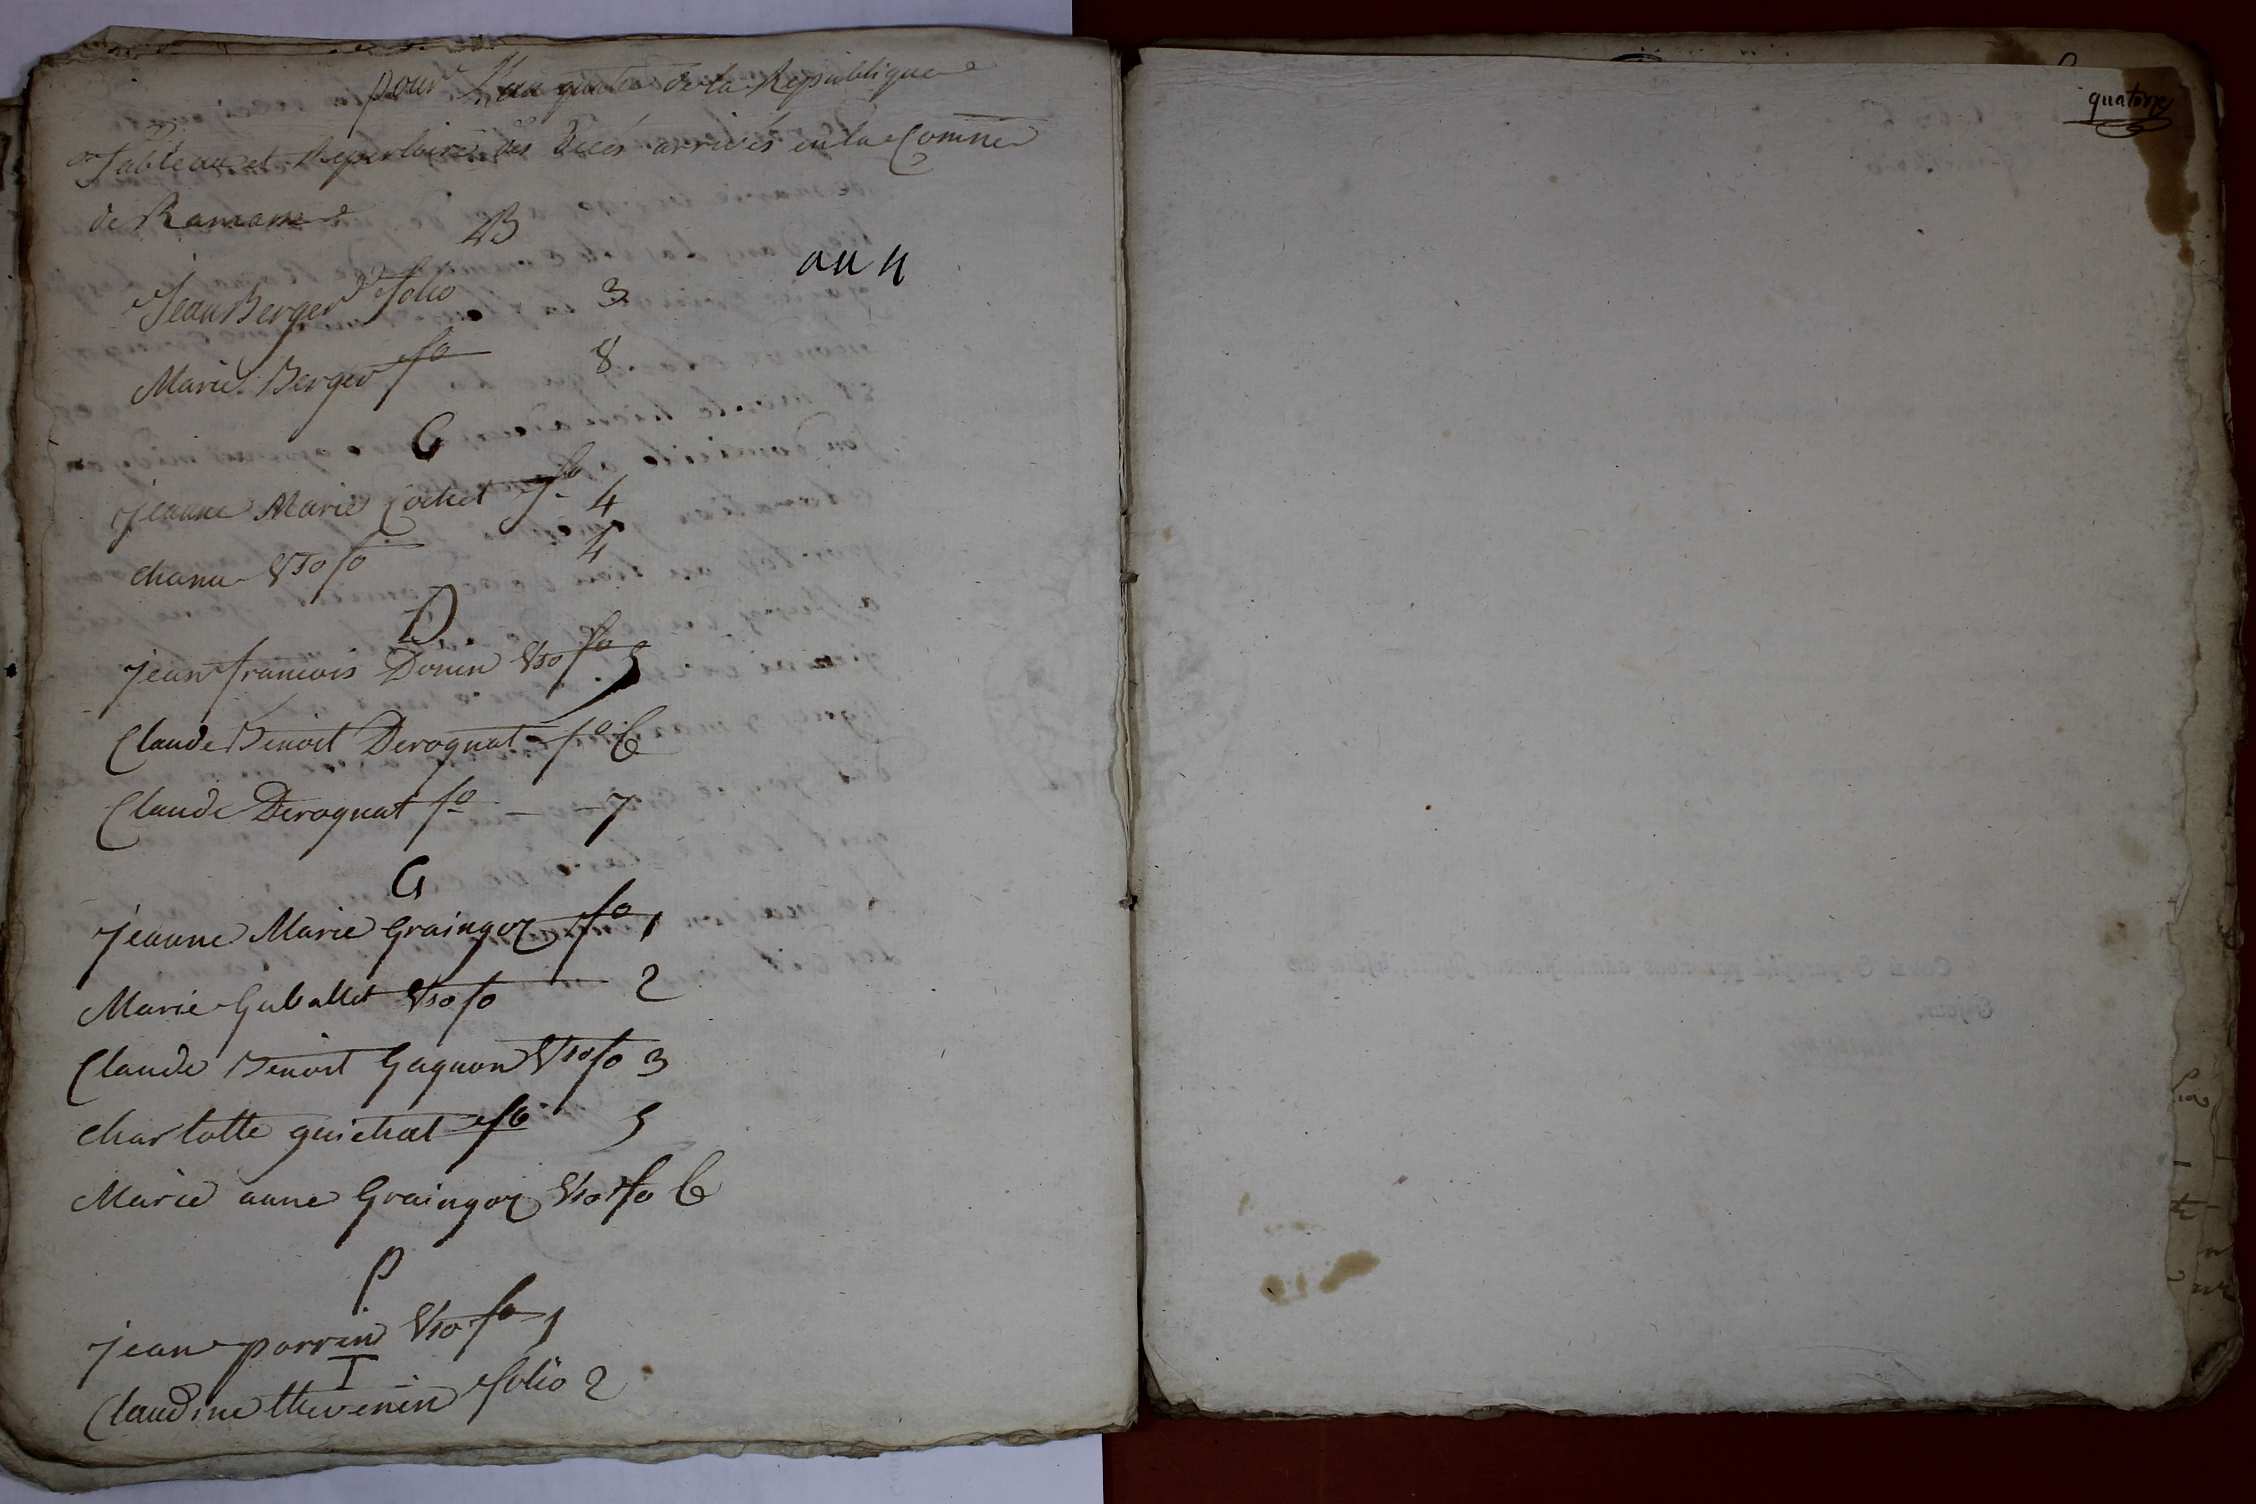 pour L'an quatre de la Republique
Tableau et Repertoire des Decés arrivés en la Comne
de Ramasse
B
an 4
Jean Berger folio 3
Marie Berger fo 8
C
jeanne Marie Cochet fo 4
chanu Vso fo 4
D.
jean francois Donin Vso fo 5
Claude Benoit Deroquat fo 6
Claude Deroquat fo - - 7
G
jeanne Marie Graingoz fo 1
Marie Guballet Vso fo 2
Claude Benoit Gagnon Vso fo 3
charlotte guichat fo 5
Marie anne Graingoz Vso fo 6
P
jean perrin Vso fo 1
T
Claudine thevenin folio 2
quatorze